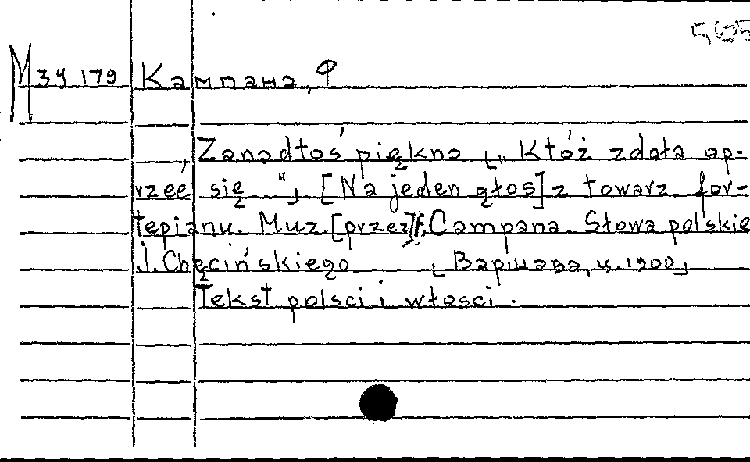 565
M 34 179 Кампана, Ф
Zanadtoś piękno „ Któż zdoła op-
rzeć się “, [Na jeden głos] z towarz. for-
tepianu. Muz. [przez] F. Campana. Słowa polskie
J. Chęcińskiego [Варшава, ц. 1900]
Tekst polsci i włosci.